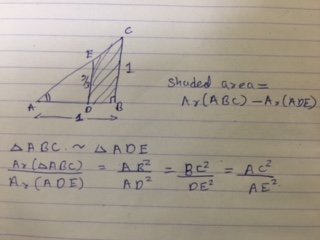 C
E
1
shaded area =
Ar(ABC) - Ar(ADE)
A D B
1
△ABC ~ △ADE
Ar(△ABC) / Ar(ADE) = AB² / AD² = BC² / DE² = AC² / AE²